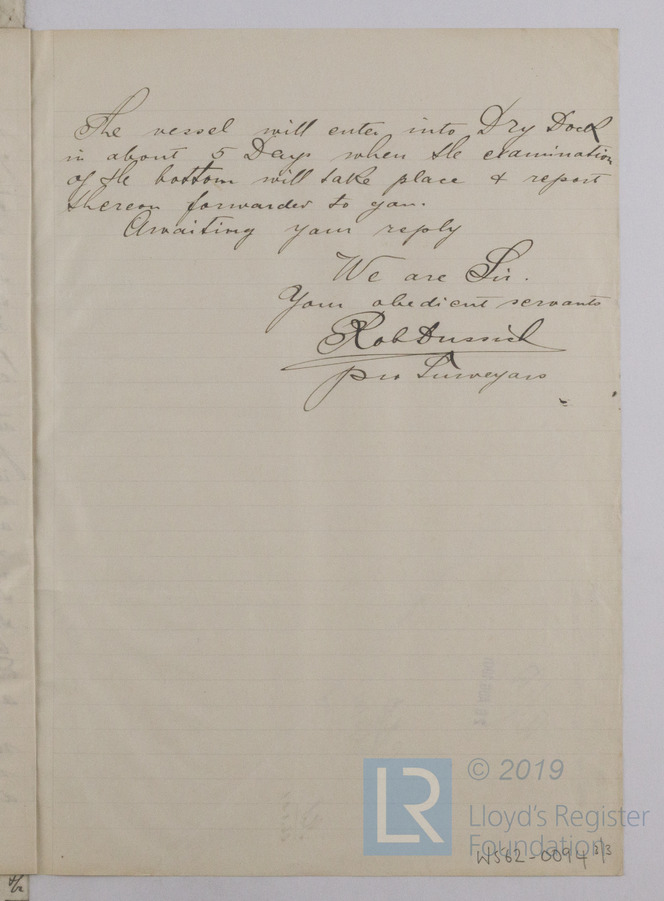 The vessel will enter into Dry Dock
in about 5 Days when the examination
of the bottom will take place & report
thereon forwarded to you.
Awaiting your reply
We are Sir.
Your obedient servants
Rob Dussich
pro Surveyors
© 2019
LR
Lloyd's Register
Foundation
WS62-0094 3/3